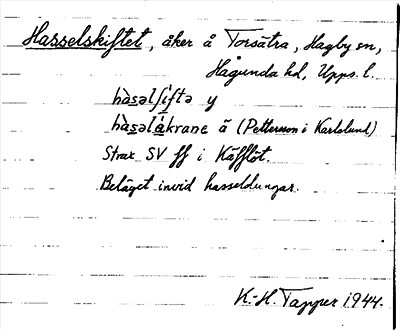 Hasselskiftet, åker å Torsätra, Hagby sn,
Hagunda hd, Upps. l.
hàsəlʃiftə y
hàsəlåkrane ä (Pettersson i Karlslund)
Strax SV ff i Käfflöt.
Beläget invid hasseldungar.
K.-H. Tapper 1944.